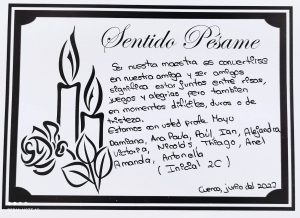 Sentido Pésame
Ser nuestra maestra es convertirse
en nuestra amiga y ser amigos
significa estar juntos entre risas,
juegos y alegrías pero también
en momentos difíciles, duros o de
tristeza.
Estamos con usted profe Mayu
Damiana, Ana Paula, Paúl, Ian, Alejandra,
Victoria, Nicolás, Thiago, Ariel
Amanda, Antonella
( Inicial 2C )
Cuenca, junio del 2022